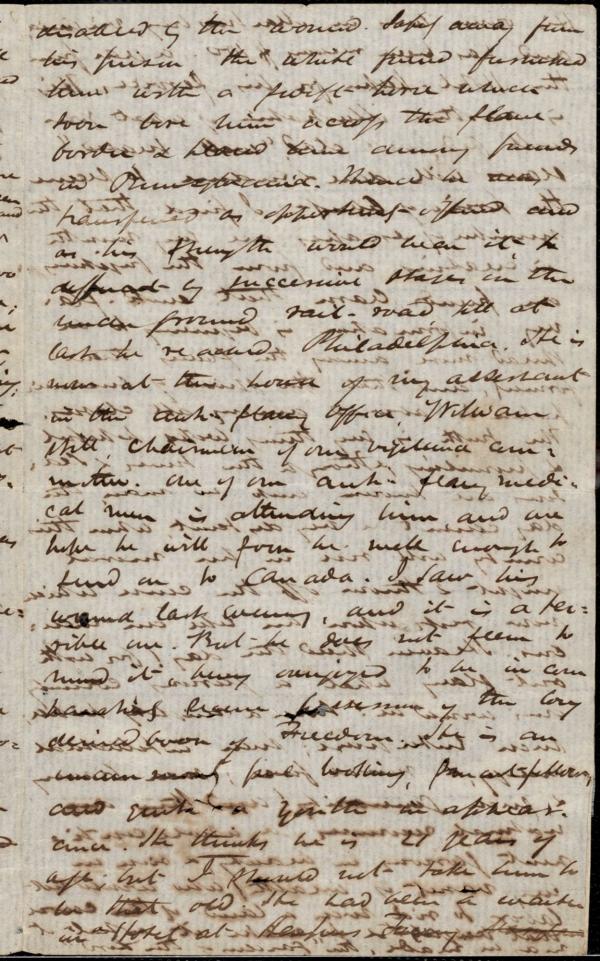 disabled by the wound. Safely away from
his prison the white friend furnished
him with a swift horse which
soon bore him across the slave
border & him among friends
in Pennsylvania. Thence he was
transferred as opportunity offered and
as his strength would bear it, &
by successive stages in the
under ground rail-road till at
last he reached Philadelphia. He is
now at the house of my assistant
in the anti-slavery office, William
Still, chairman of our vigilance com=
mittee. One of our anti-slavery medi=
cal men is attending him and we
hope he will soon be well enough to
send on to Canada. I saw his
wound last evening, and it is a ter=
rible one. But he does not seem to
mind it, being overjoyed to be in com
secure possession of the long
desired boon of Freedom. He is an
uncommonly fine looking,
and quite a youth in appear=
ance. He thinks he is 21 years of
age but I should not take him to
be that old. He had been a waiter
in a Hotel at Harpers Ferry